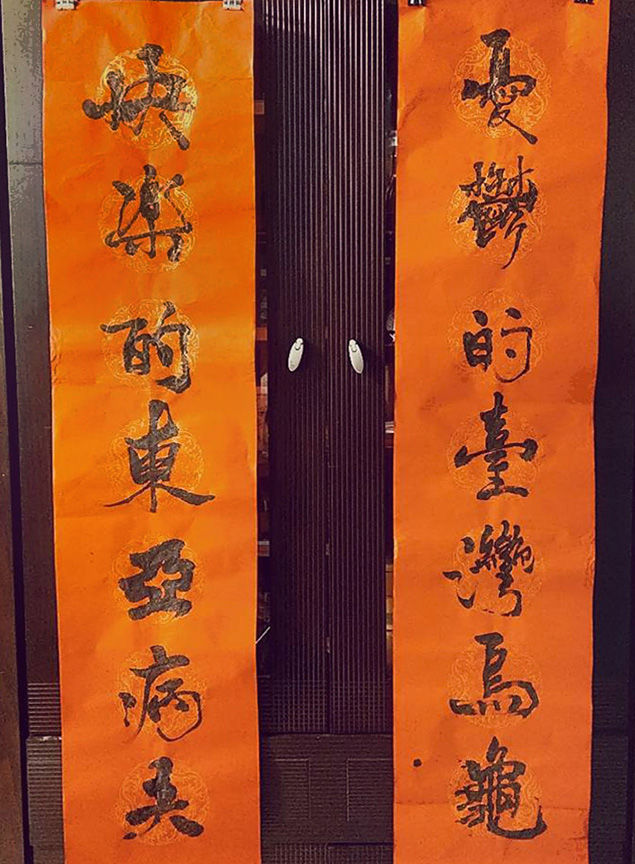 憂鬱的臺灣烏龜
快樂的東亞病夫